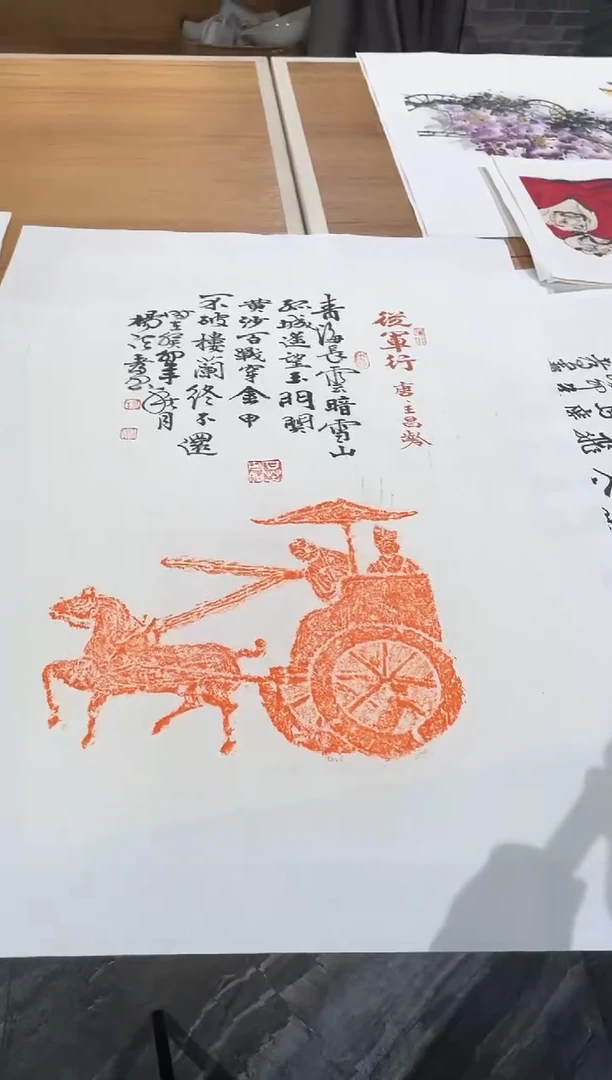 從軍行 唐·王昌齡
青海長雲暗雪山
孤城遥望玉門関
黄沙百戰穿金甲
不破樓蘭終不還
癸卯年 月
楊